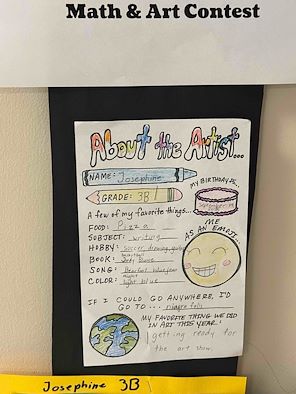 Math & Art Contest
About the Artist...
NAME: Josephine
GRADE: 3B
MY BIRTHDAY IS...
A few of my favorite things...
FOOD: Pizza
SUBJECT: writing
HOBBY: soccer, drawing,
BOOK:
SONG:
COLOR: light blue
ME
AS AN EMOJI...
IF I COULD GO ANYWHERE, I'D
GO TO... niagra falls
MY FAVORITE THING WE DID
IN ART THIS YEAR...
getting ready for
the art show.
Josephine 3B